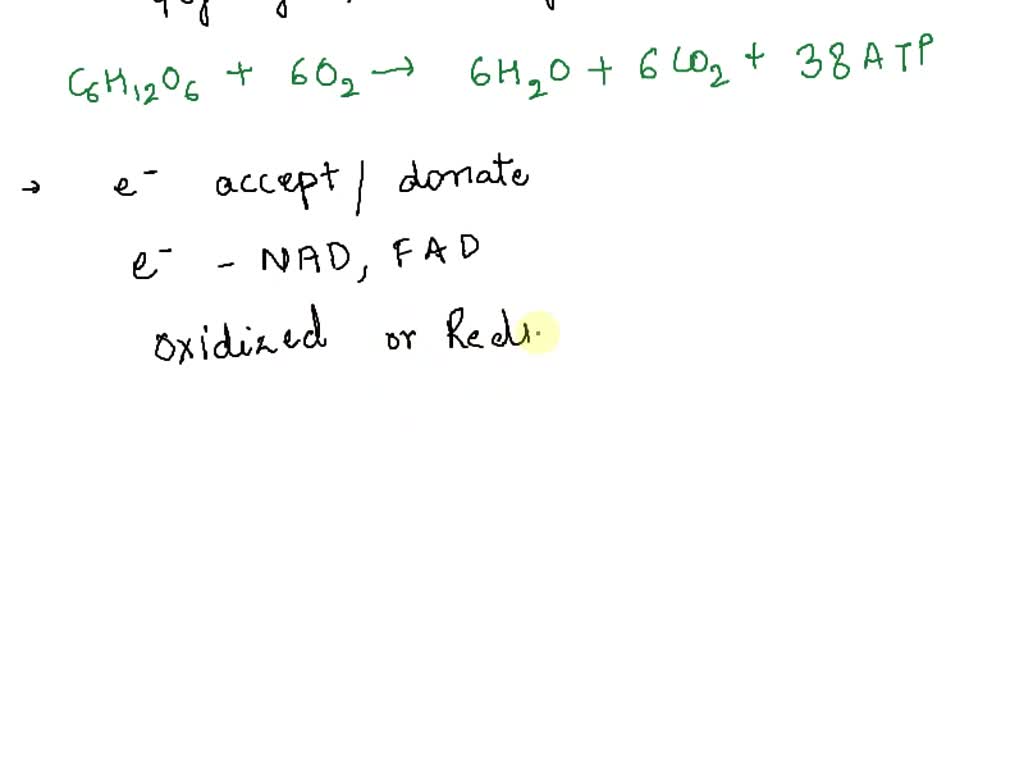 C6H12O6 + 6O2 → 6H2O + 6CO2 + 38 ATP
→ e⁻ accept / donate
e⁻ - NAD, FAD
oxidized or Redu